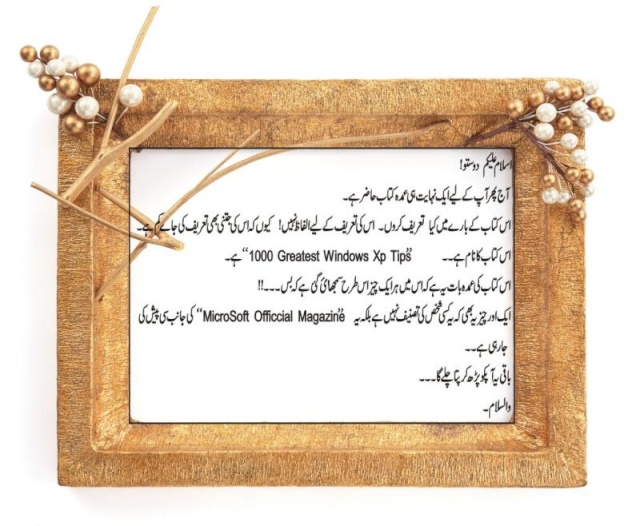 اسلام علیکم دوستو!
آج پھر آپ کے لیے ایک نہایت ہی عمدہ کتاب حاضر ہے۔
اس کتاب کے بارے میں کیا تعریف کروں۔ اس کی تعریف کے لیے الفاظ نہیں! کیوں کہ اس کی جتنی بھی تعریف کی جائے کم ہے۔
اس کتاب کا نام ہے۔۔ "1000 Greatest Windows Xp Tips" ہے۔
اس کتاب کی عمدہ بات یہ ہے کہ اس میں ہر ایک چیز اس طرح سمجھائی گئی ہے کہ بس۔۔۔!!
ایک اور چیز یہ بھی کہ یہ کسی شخص کی تصنیف نہیں ہے بلکہ یہ "MicroSoft Officcial Magazine" کی جانب سی پیش کی
جا رہی ہے۔۔
باقی یہ آپکو پڑھ کر پتا چلے گا۔۔۔
والسلام۔